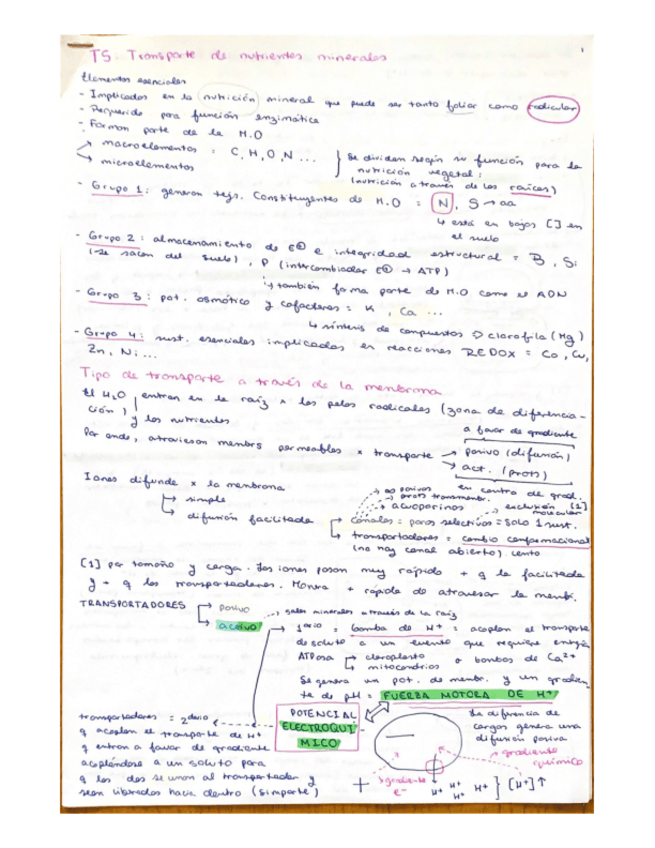 T5. Transporte de nutrientes minerales
1
Elementos esenciales
- Implicados en la nutrición mineral que puede ser tanto foliar como radicular
- Requerido para función enzimática
- Forman parte de la M.O
macroelementos = C, H, O, N ...
microelementos
Se dividen según su función para la
nutrición vegetal:
(nutrición a través de las raíces)
- Grupo 1: generan tejs. Constituyentes de M.O = N, S → aa
↳ está en bajas [] en
el suelo
- Grupo 2: almacenamiento de E⊕ e integridad estructural = B, Si
(se sacan del suelo), P (intercambiador E⊕ → ATP)
↳ también forma parte de M.O como el ADN
- Grupo 3: pot. osmótico y cofactores = K, Ca ...
↳ síntesis de compuestos → clorofila (Mg)
- Grupo 4: sust. esenciales implicados en reacciones REDOX = Co, Cu,
Zn, Ni ...
Tipo de transporte a través de la menbrana
El H2O y los nutrientes entran en la raíz x los pelos radicales (zona de diferencia-
ción)
a favor de gradiente
Por ende, atraviesan membrs permeables x transporte → pasivo (difusión)
→ act. (prots)
en contra de grad.
Iones difunde x la membrana
↳ simple
↳ difusión facilitada
→ prots transmembr.
→ acuoporinas
exclusión [1]
molecular
→ canales = poros selectivos = solo 1 sust.
→ transportadores = cambio conformacional
(no hay canal abierto). Lento
[1] por tamaño y carga. Los iones pasan muy rápido + q la facilitada
y + q los transportadores. Manera + rápida de atravesar la membr.
TRANSPORTADORES → pasivo → sales minerales a través de la raíz
→ activo → 1ario = bomba de H+ = acoplan el transporte
de soluto a un evento que requiere energía
ATPasa → cloroplasto o bombas de Ca2+
→ mitocondrias
Se genera un pot. de membr. y un gradien-
te de pH = FUERZA MOTORA DE H+
POTENCIAL
ELECTROQUÍ
MICO
transportadores = 2dario
q acoplan el transporte de H+
q entran a favor de gradiente
acoplándose a un soluto para
q los dos se unan al transportador y
sean liberados hacia dentro (simporte)
La diferencia de
cargas genera una
difusión pasiva
gradiente
químico
gradiente
e-
+
H+ H+
H+ H+ H+
[H+]↑